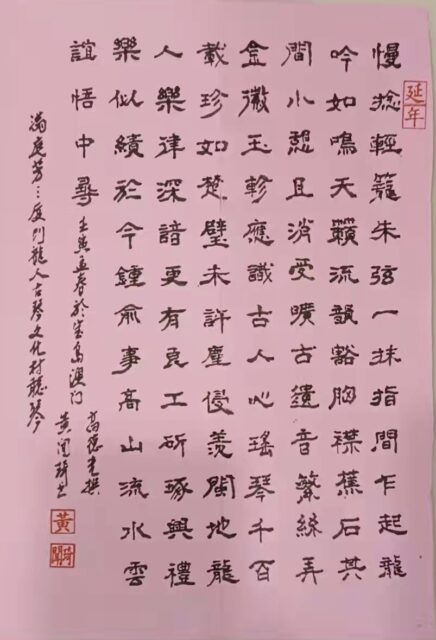 延年
慢捻輕籠朱弦一抹指間乍起龍
吟如鳴天籟流韻豁胸襟蕉石共
間小憩且消受曠古遺音繁絲弄
金徽玉軫應識古人心瑤琴千百
載珍如楚璧未許塵侵羨閩地龍
人樂律深諳更有良工斫琢興禮
樂似續於今鍾俞事高山流水雲
誼悟中尋
壬寅孟春於宝島澳门
高德光撰
滿庭芳：厦门龍人古琴文化村聽琴
黃闰琦书
黃